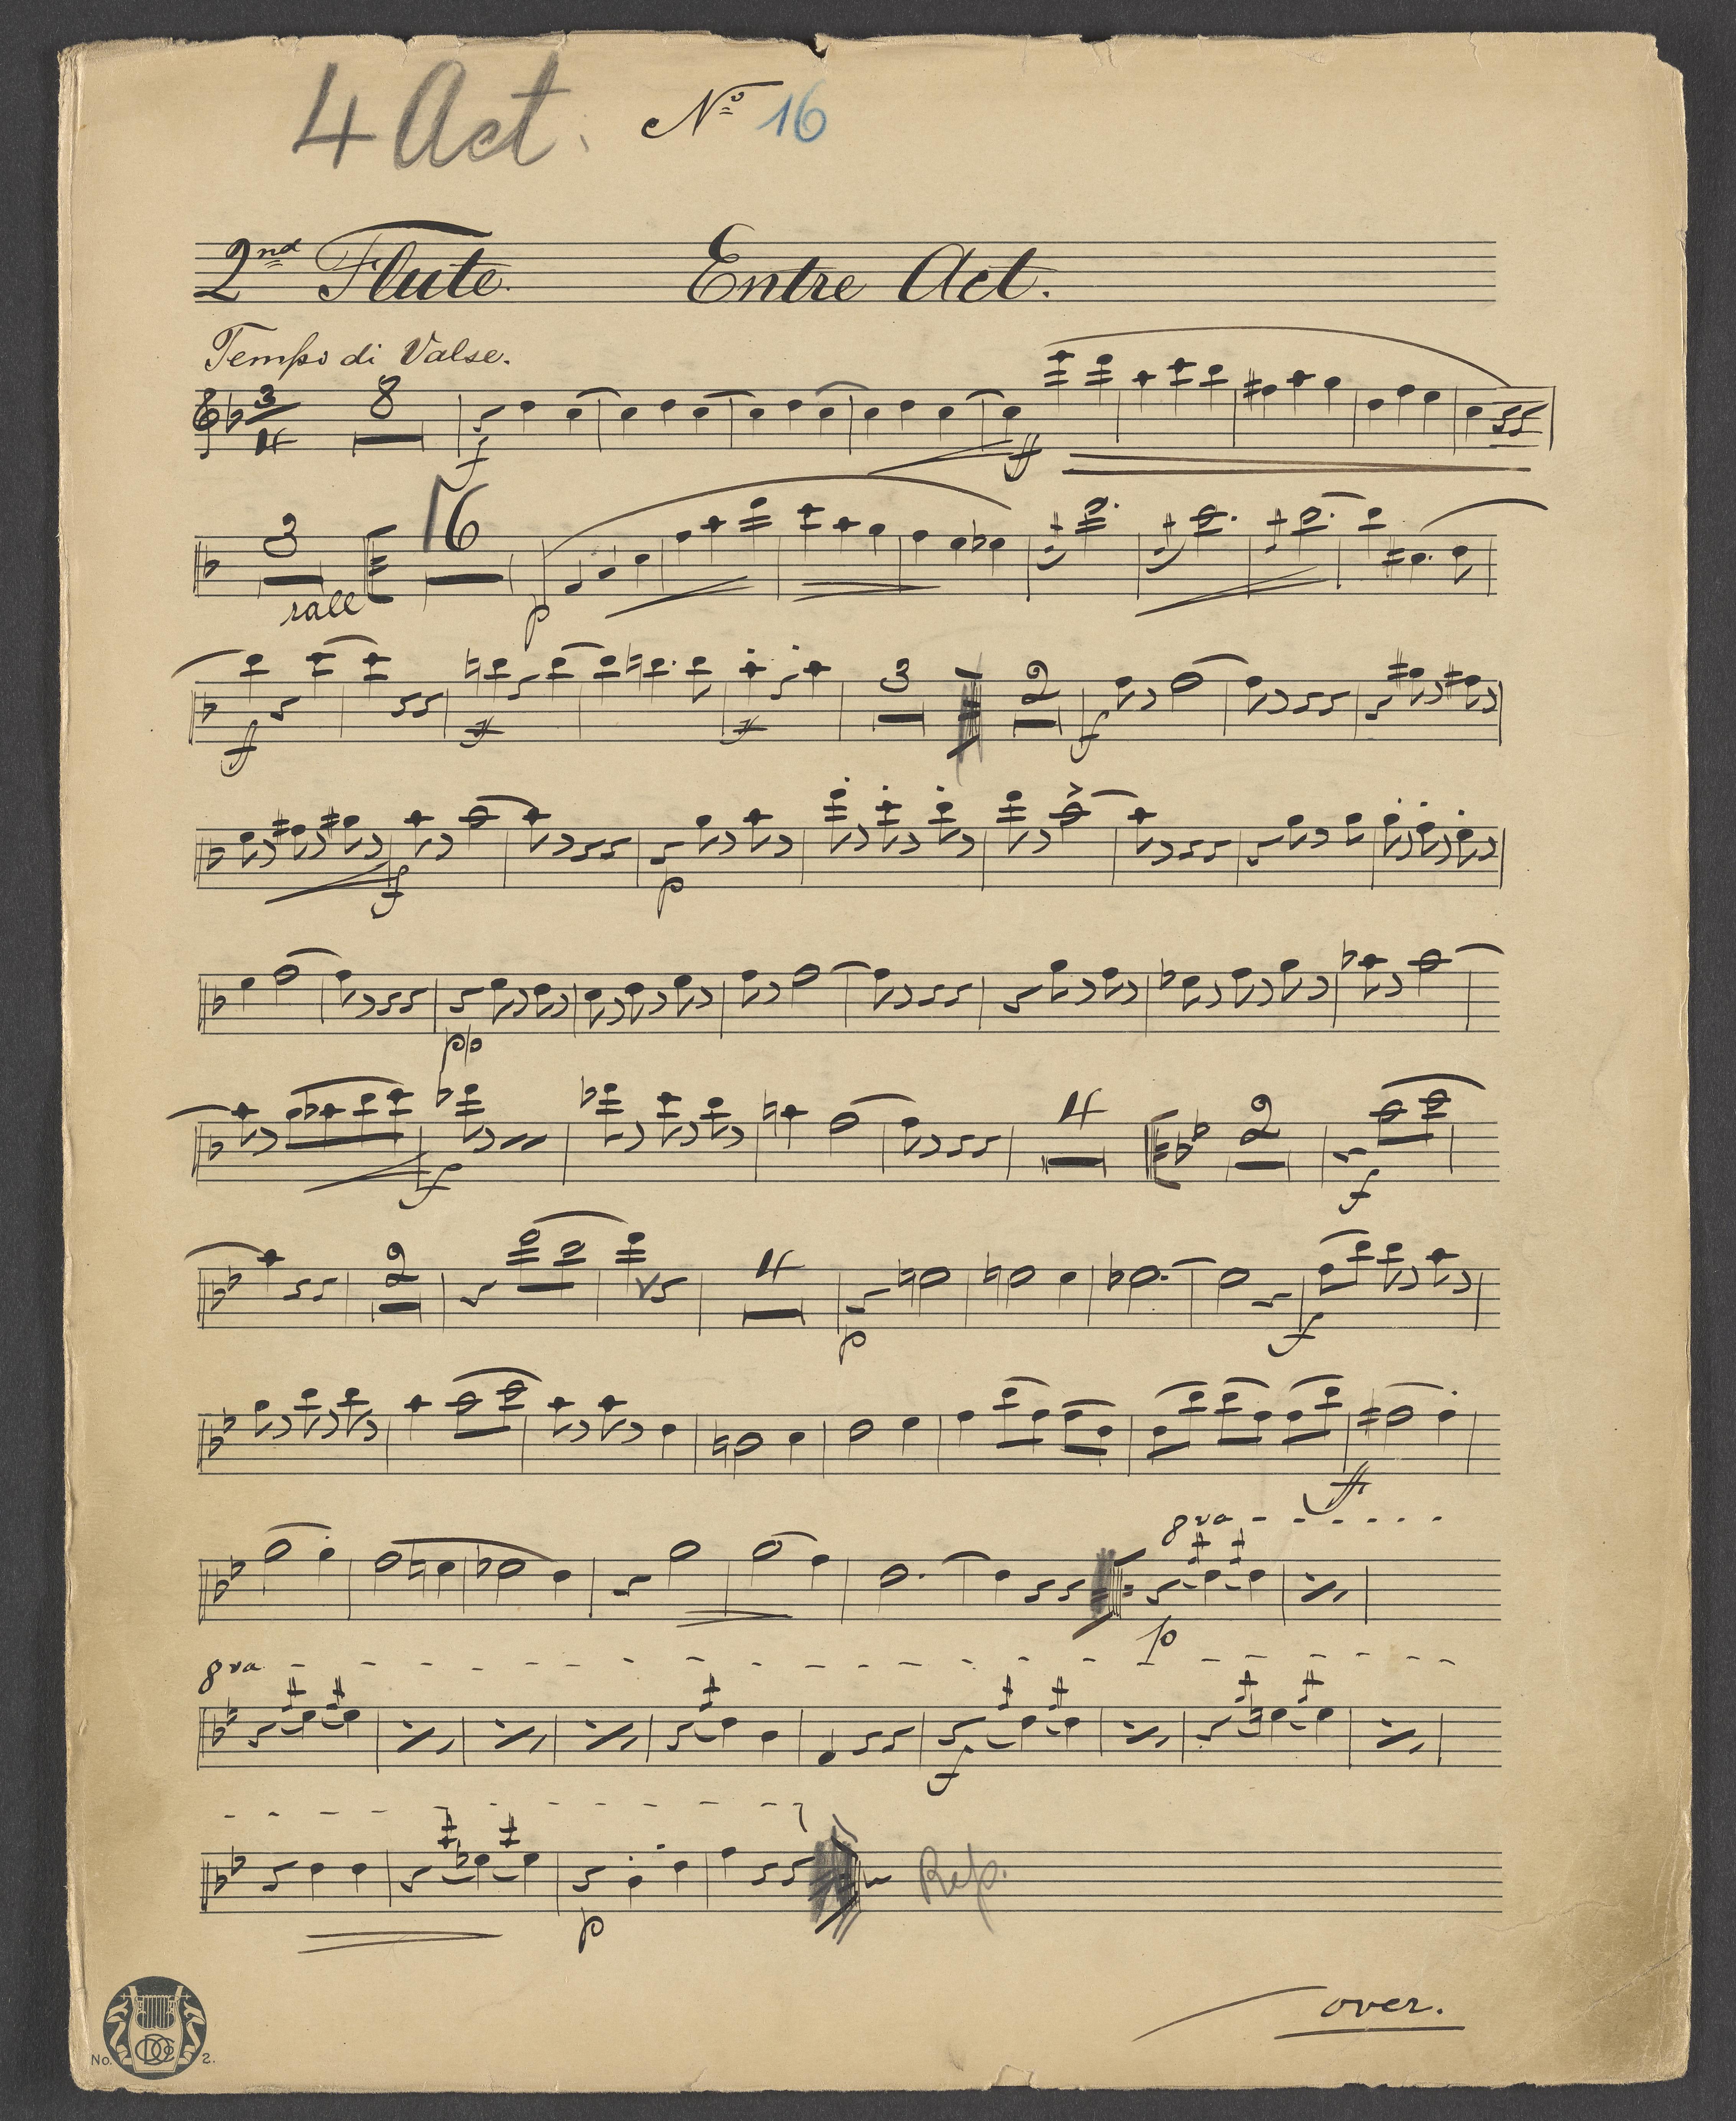 4 Act. No 16
2nd Flute. Entre Act.
Tempo di Valse.
3 4 8
f ff
3 16
rall p
f f f 3 2 f
f p
pp
f 4 2 f
2 4 p f
ff
8va
p
8va
f
p Rep.
over.
No. 2.